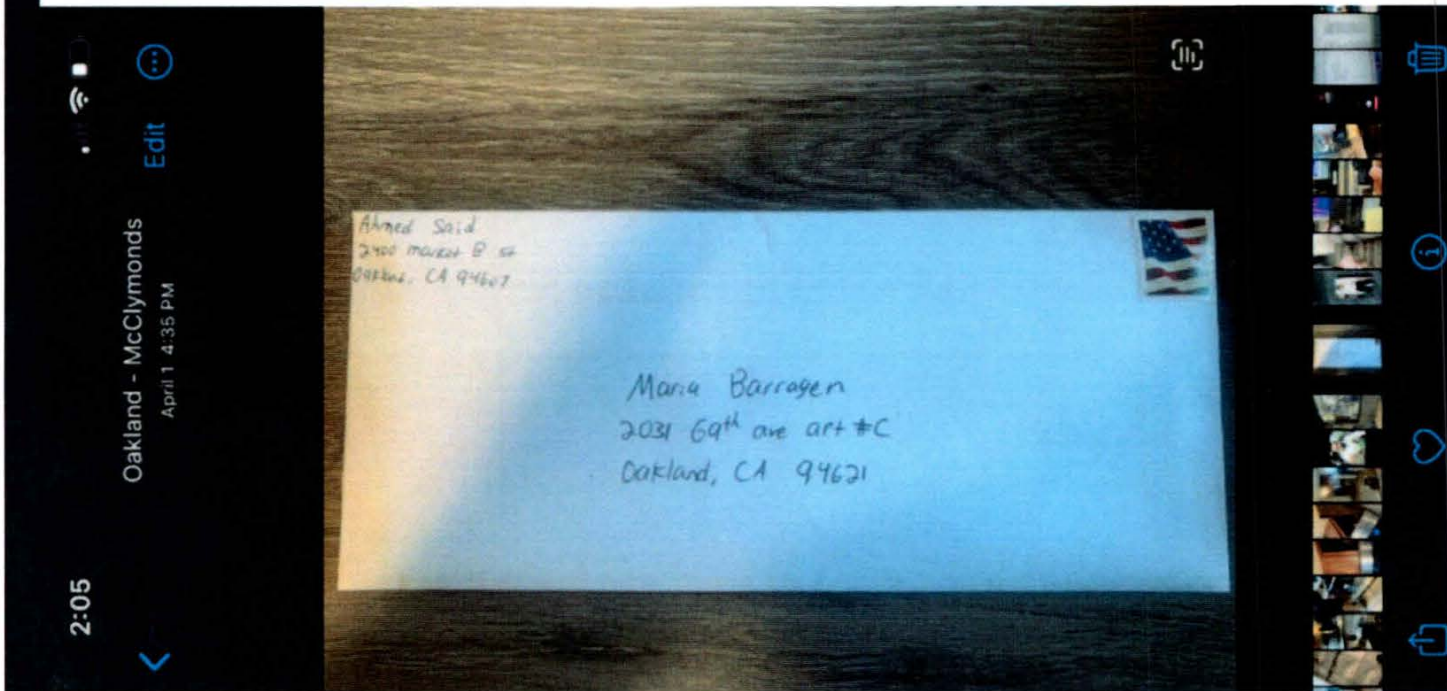 2:05
Oakland - McClymonds
April 1 4:35 PM
Edit
Ahmed Said
2400 market st
Oakland, CA 94607
Maria Barragen
2031 69th ave apt #C
Oakland, CA 94621